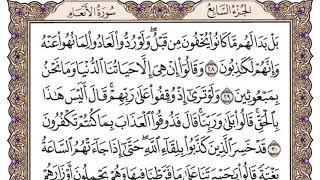 الجزء السابع سورة الأنعام
بَلْ بَدَا لَهُم مَّا كَانُوا۟ يُخْفُونَ مِن قَبْلُ ۖ وَلَوْ رُدُّوا۟ لَعَادُوا۟ لِمَا نُهُوا۟ عَنْهُ
وَإِنَّهُمْ لَكَٰذِبُونَ ٢٨ وَقَالُوٓا۟ إِنْ هِىَ إِلَّا حَيَاتُنَا ٱلدُّنْيَا وَمَا نَحْنُ
بِمَبْعُوثِينَ ٢٩ وَلَوْ تَرَىٰٓ إِذْ وُقِفُوا۟ عَلَىٰ رَبِّهِمْ ۚ قَالَ أَلَيْسَ هَٰذَا
بِٱلْحَقِّ ۚ قَالُوا۟ بَلَىٰ وَرَبِّنَا ۚ قَالَ فَذُوقُوا۟ ٱلْعَذَابَ بِمَا كُنتُمْ تَكْفُرُونَ
٣٠ قَدْ خَسِرَ ٱلَّذِينَ كَذَّبُوا۟ بِلِقَآءِ ٱللَّهِ ۖ حَتَّىٰٓ إِذَا جَآءَتْهُمُ ٱلسَّاعَةُ
بَغْتَةً قَالُوا۟ يَٰحَسْرَتَنَا عَلَىٰ مَا فَرَّطْنَا فِيهَا وَهُمْ يَحْمِلُونَ أَوْزَارَهُمْ